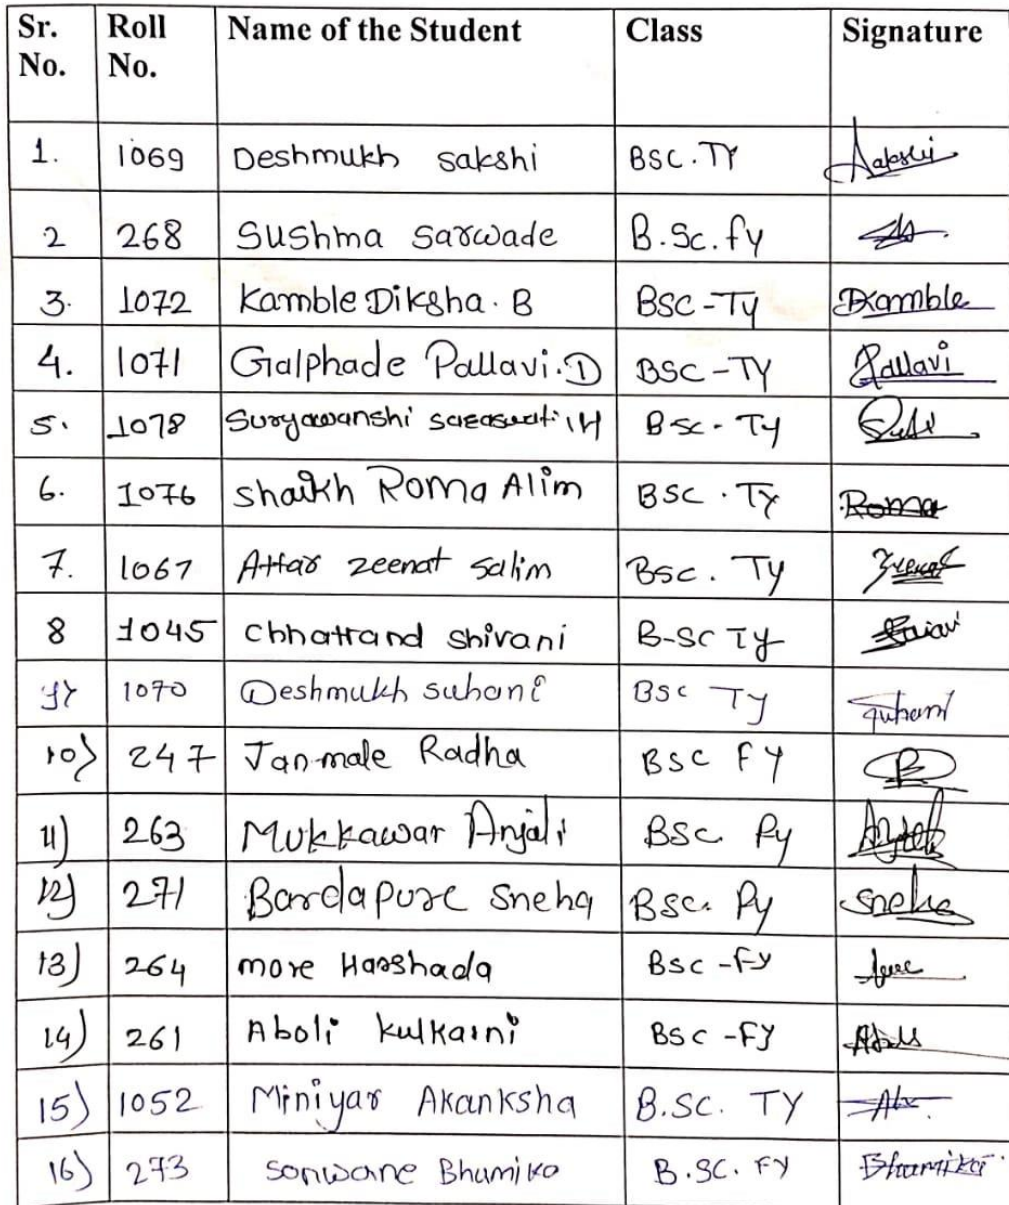 Sr. No. Roll No. Name of the Student Class Signature
1. 1069 Deshmukh Sakshi BSC.TY Sakshi
2 268 Sushma Sarwade B.Sc.fy
3. 1072 Kamble Diksha. B BSC-Ty DKamble
4. 1071 Galphade Pallavi.D BSC-TY Pallavi
5. 1078 Suryawanshi BSC-Ty
6. 1076 Shaikh Roma Alim BSC.Ty Roma
7. 1067 Attar zeenat Salim BSC. Ty Zeenat
8 1045 Chhatrand Shivani B-SC Ty
9) 1070 Deshmukh suhani BSC Ty Suhani
10) 247 Janmale Radha BSC FY
11) 263 Mukkawar Anjali BSC. Fy
12) 271 Bardapure Sneha BSC. Fy Sneha
13) 264 more Harshada BSC-Fy
14) 261 Aboli kulkarni BSC-FY
15) 1052 Miniyar Akanksha B.SC. TY
16) 273 Sonwane Bhumika B.SC. FY Bhumika